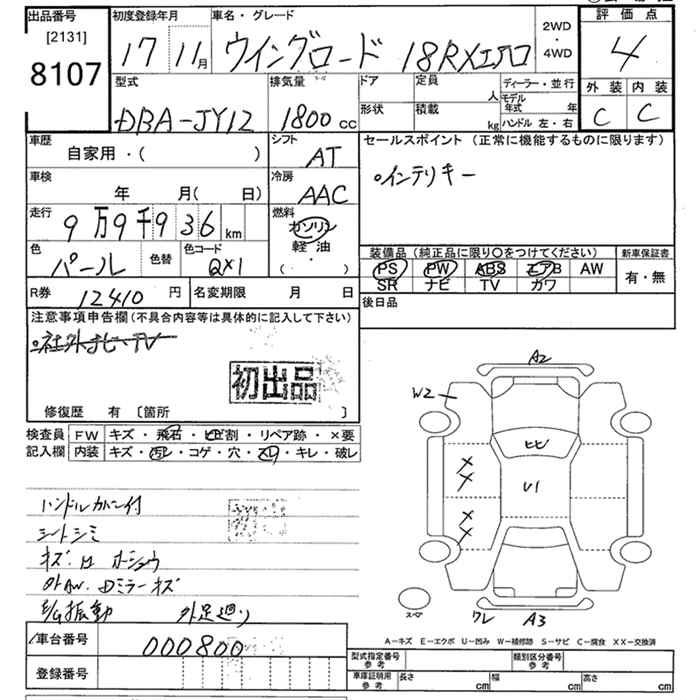 出品番号
[2131]
8107
初度登録年月
17 11月
車名・グレード
ウイングロード 18RXエアロ
2WD
・
4WD
評価点
4
外装 内装
C C
型式
DBA-JY12
排気量
1800 cc
ドア
定員
人
ディーラー・並行
モデル年式 年
形状
積載
kg
ハンドル 左・右
車歴
自家用・( )
シフト
AT
セールスポイント (正常に機能するものに限ります)
・インテリキー
車検
年 月( 日)
冷房
AAC
走行
9万9千936km
燃料
ガソリン
軽油
( ・ )
色
パール
色替
色コード
QX1
装備品 (純正品に限り○をつけてください)
新車保証書
PS PW ABS エアB AW
有・無
SR ナビ TV カワ
R券 12410円
名変期限 月 日
後日品
注意事項申告欄 (不具合内容等は具体的に記入して下さい)
・社外ナビ・TV
初出品
修復歴 有 〔箇所 〕
検査員 FW キズ・飛石・ヒビ割・リペア跡・×要
記入欄 内装 キズ・汚レ・コゲ・穴・スレ・キレ・破レ
ハンドルカバー付
シートシミ
外AW・Dミラーキズ
外足廻り
A2
W2
ヒビ
U1
スペア
ワレ A3
A-キズ E-エクボ U-凹み W-補修跡 S-サビ C-腐食 XX-交換済
車台番号 000800
登録番号
型式指定番号
参考
類別区分番号
参考
車庫証明用
参考
長さ cm 幅 cm 高さ cm